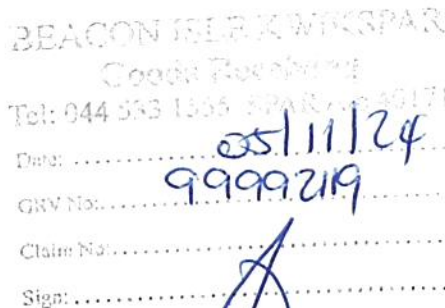 BEACON ISLE KWIKSPAR
Goods Receiving
Tel: 044 533 1355 SPAR
Date: 05/11/24
GRV No: 99992119
Claim No:
Sign: